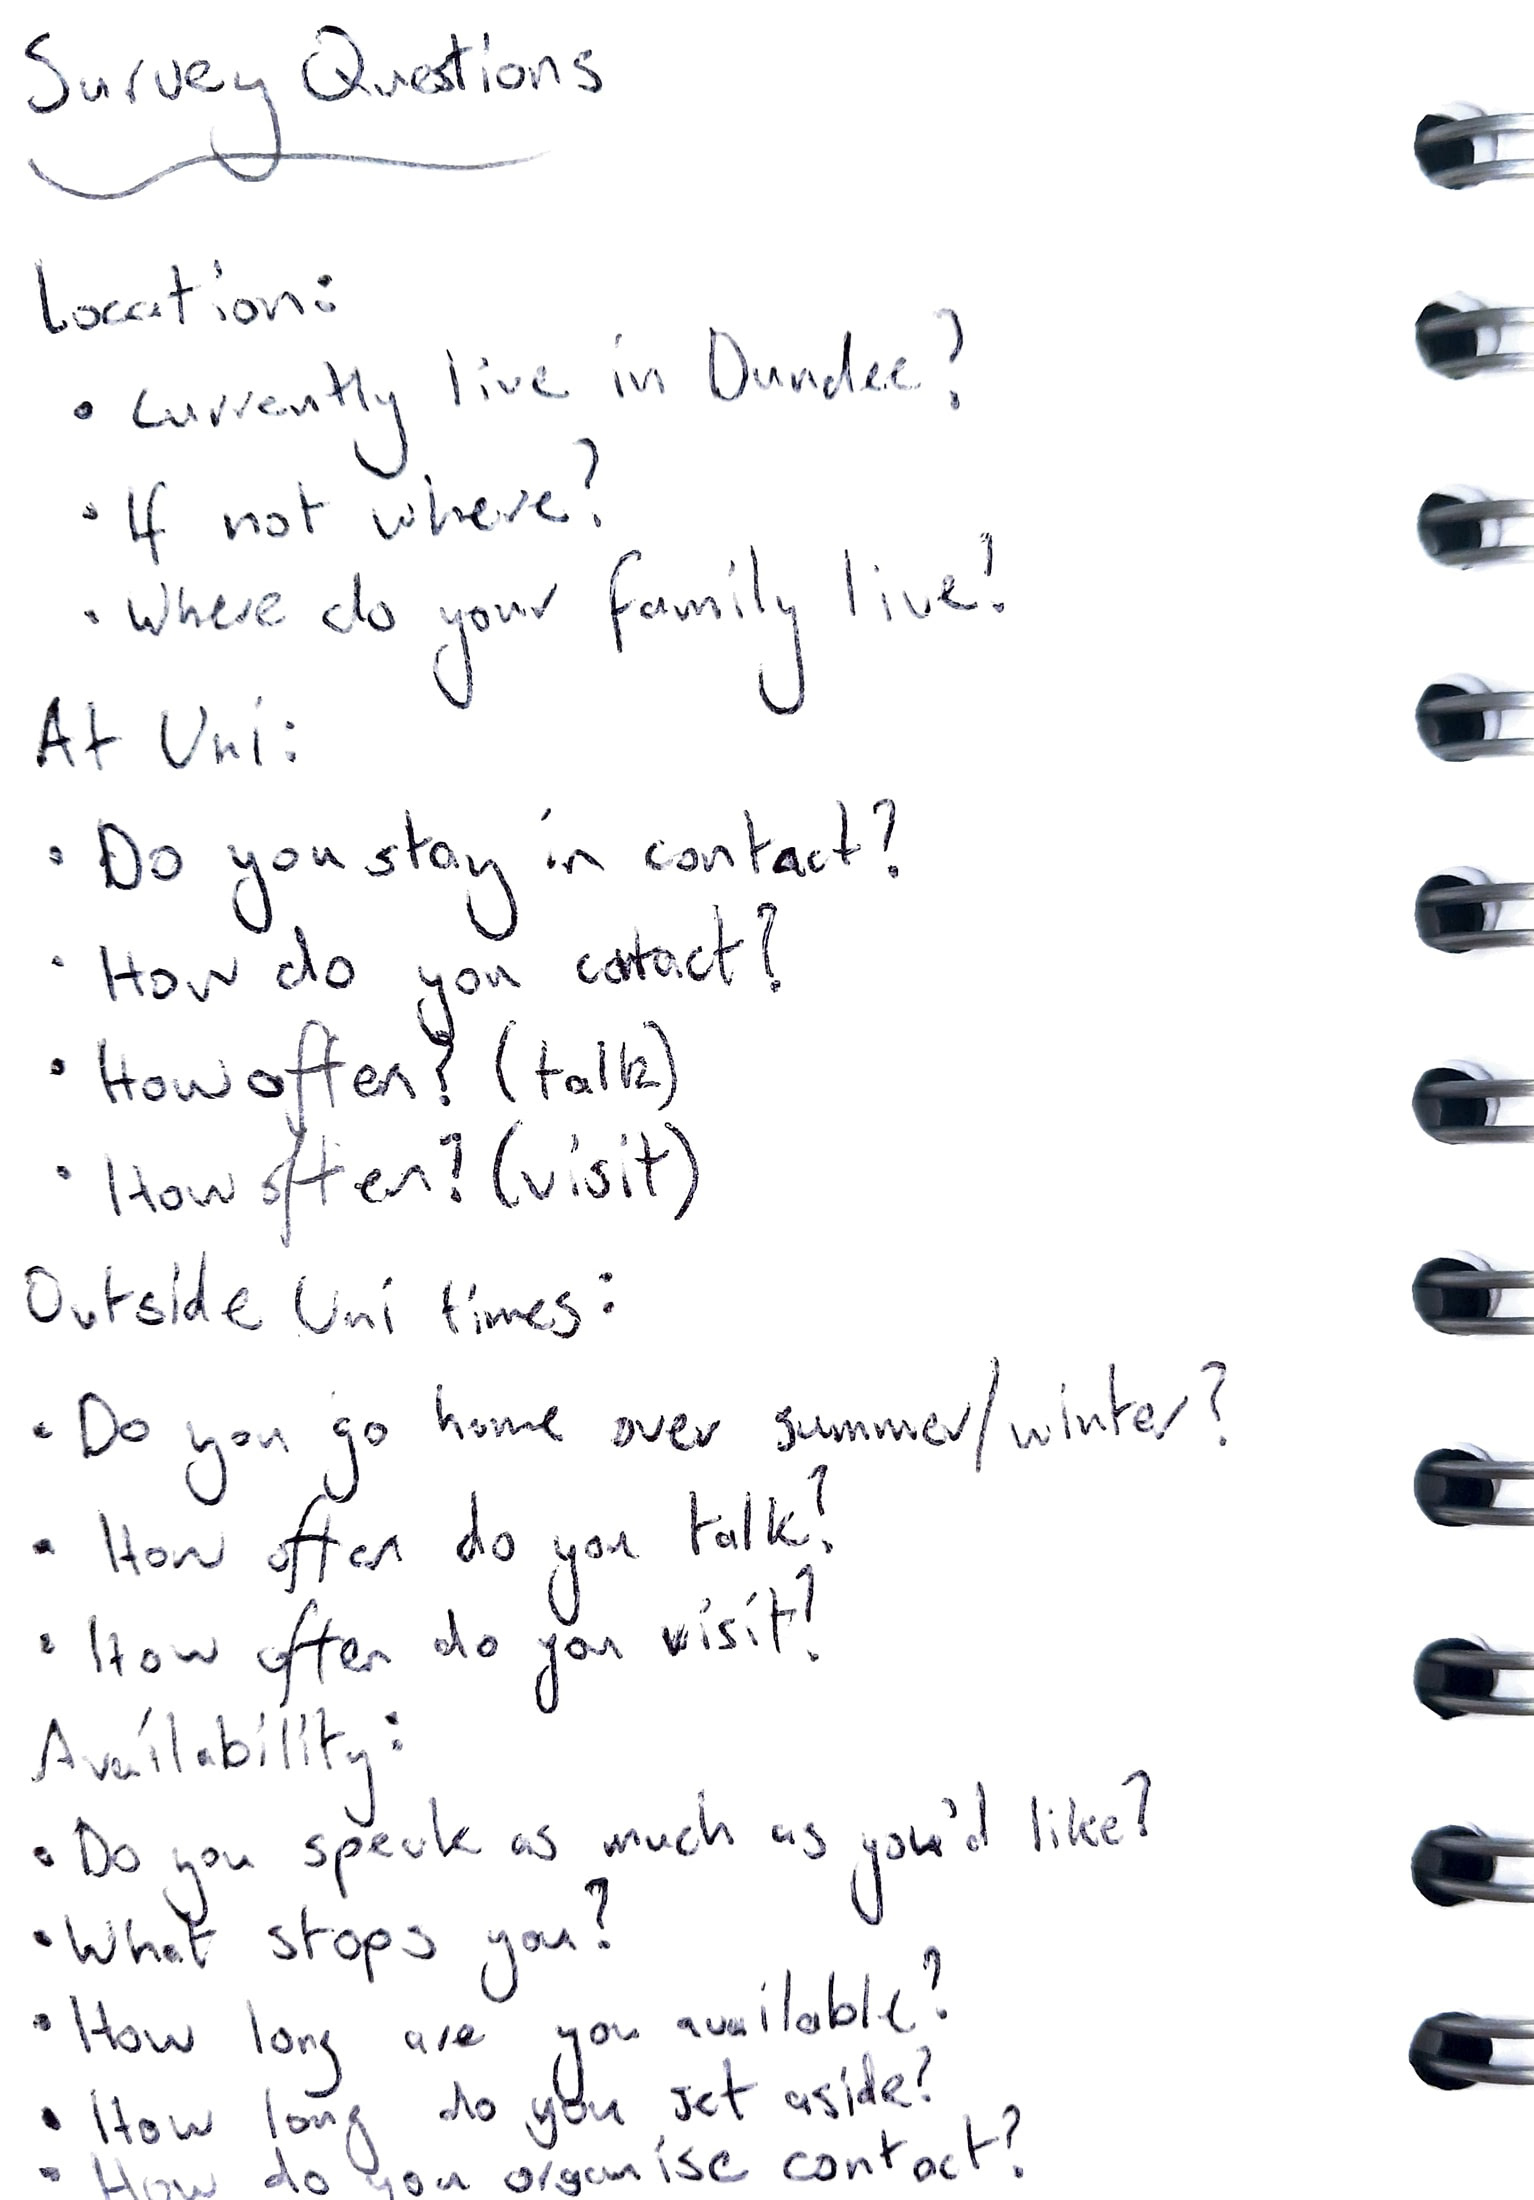 Survey Questions
Location:
• Currently live in Dundee?
• If not where?
• Where do your family live?
At Uni:
• Do you stay in contact?
• How do you contact?
• How often? (talk)
• How often? (visit)
Outside Uni times:
• Do you go home over summer/winter?
• How often do you talk?
• How often do you visit?
Availability:
• Do you speak as much as you'd like?
• What stops you?
• How long are you available?
• How long do you set aside?
• How do you organise contact?